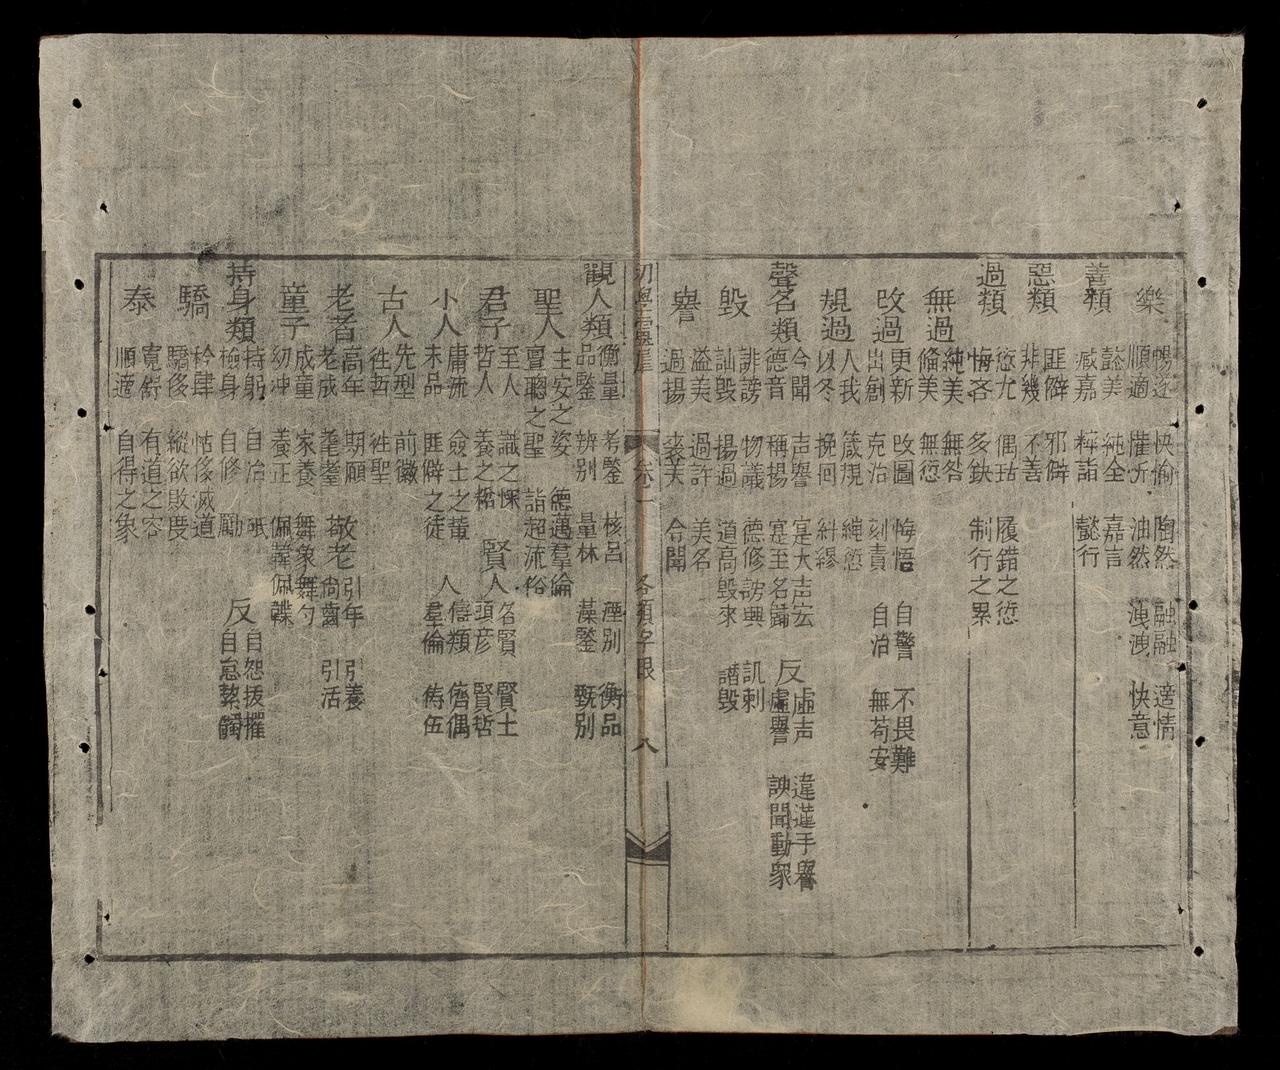 樂
暢遂 快愉 陶然 融融 適情
順適 懽忻 油然 洩洩 快意
善類
懿美 純全 嘉言
臧嘉 粹詣 懿行
惡類
匪僻 邪僻
非幾 不善
過類
愆尤 偶玷 履錯之愆
悔吝 多缺 制行之累
無過
純美 無咎
脩美 無愆
改過
更新 改圖 悔悟 自警 不畏難
出創 克治 刻責 自治 無苟安
規過
人我 箴規 繩愆
以冬 挽回 糾繆
聲名類
令聞 声譽 寔大声宏 反 虛声 違道干譽
德音 稱揚 寔至名歸 虛譽 諛聞動衆
毀
誹謗 物議 德修謗興 訊刺
訕毀 揚過 道高毀來 譖毀
譽
溢美 過許 美名
過揚 褒美 令聞
初學靈犀 卷一 各類字眼 八
觀人類
衡量 考鑒 核呂 湮別 衡品
品鑒 辨別 量材 藻鑒 甄別
聖人
生安之姿 德邁羣倫
亶聰之聖 詣超流俗
君子
至人 識之深 賢人 名賢 賢士
哲人 養之粹 頭彦 賢哲
小人
庸流 僉士之輩 人 儔類 儕偶
末品 匪僻之徒 羣倫 儔伍
古人
先型 前徽
徃哲 徃聖
老者
高年 期願 敬老 引年 引養
老成 耄耋 尚齒 引活
童子
成童 家養 舞象舞勺
幼冲 養正 佩韘佩觿
持身類
持躬 自治 砥 反 自怨
檢身 自修 勵 自怠
驕
矜肆 怙侈滅道
驕侈 縱欲敗度
泰
寬舒 有道之容
順適 自得之象